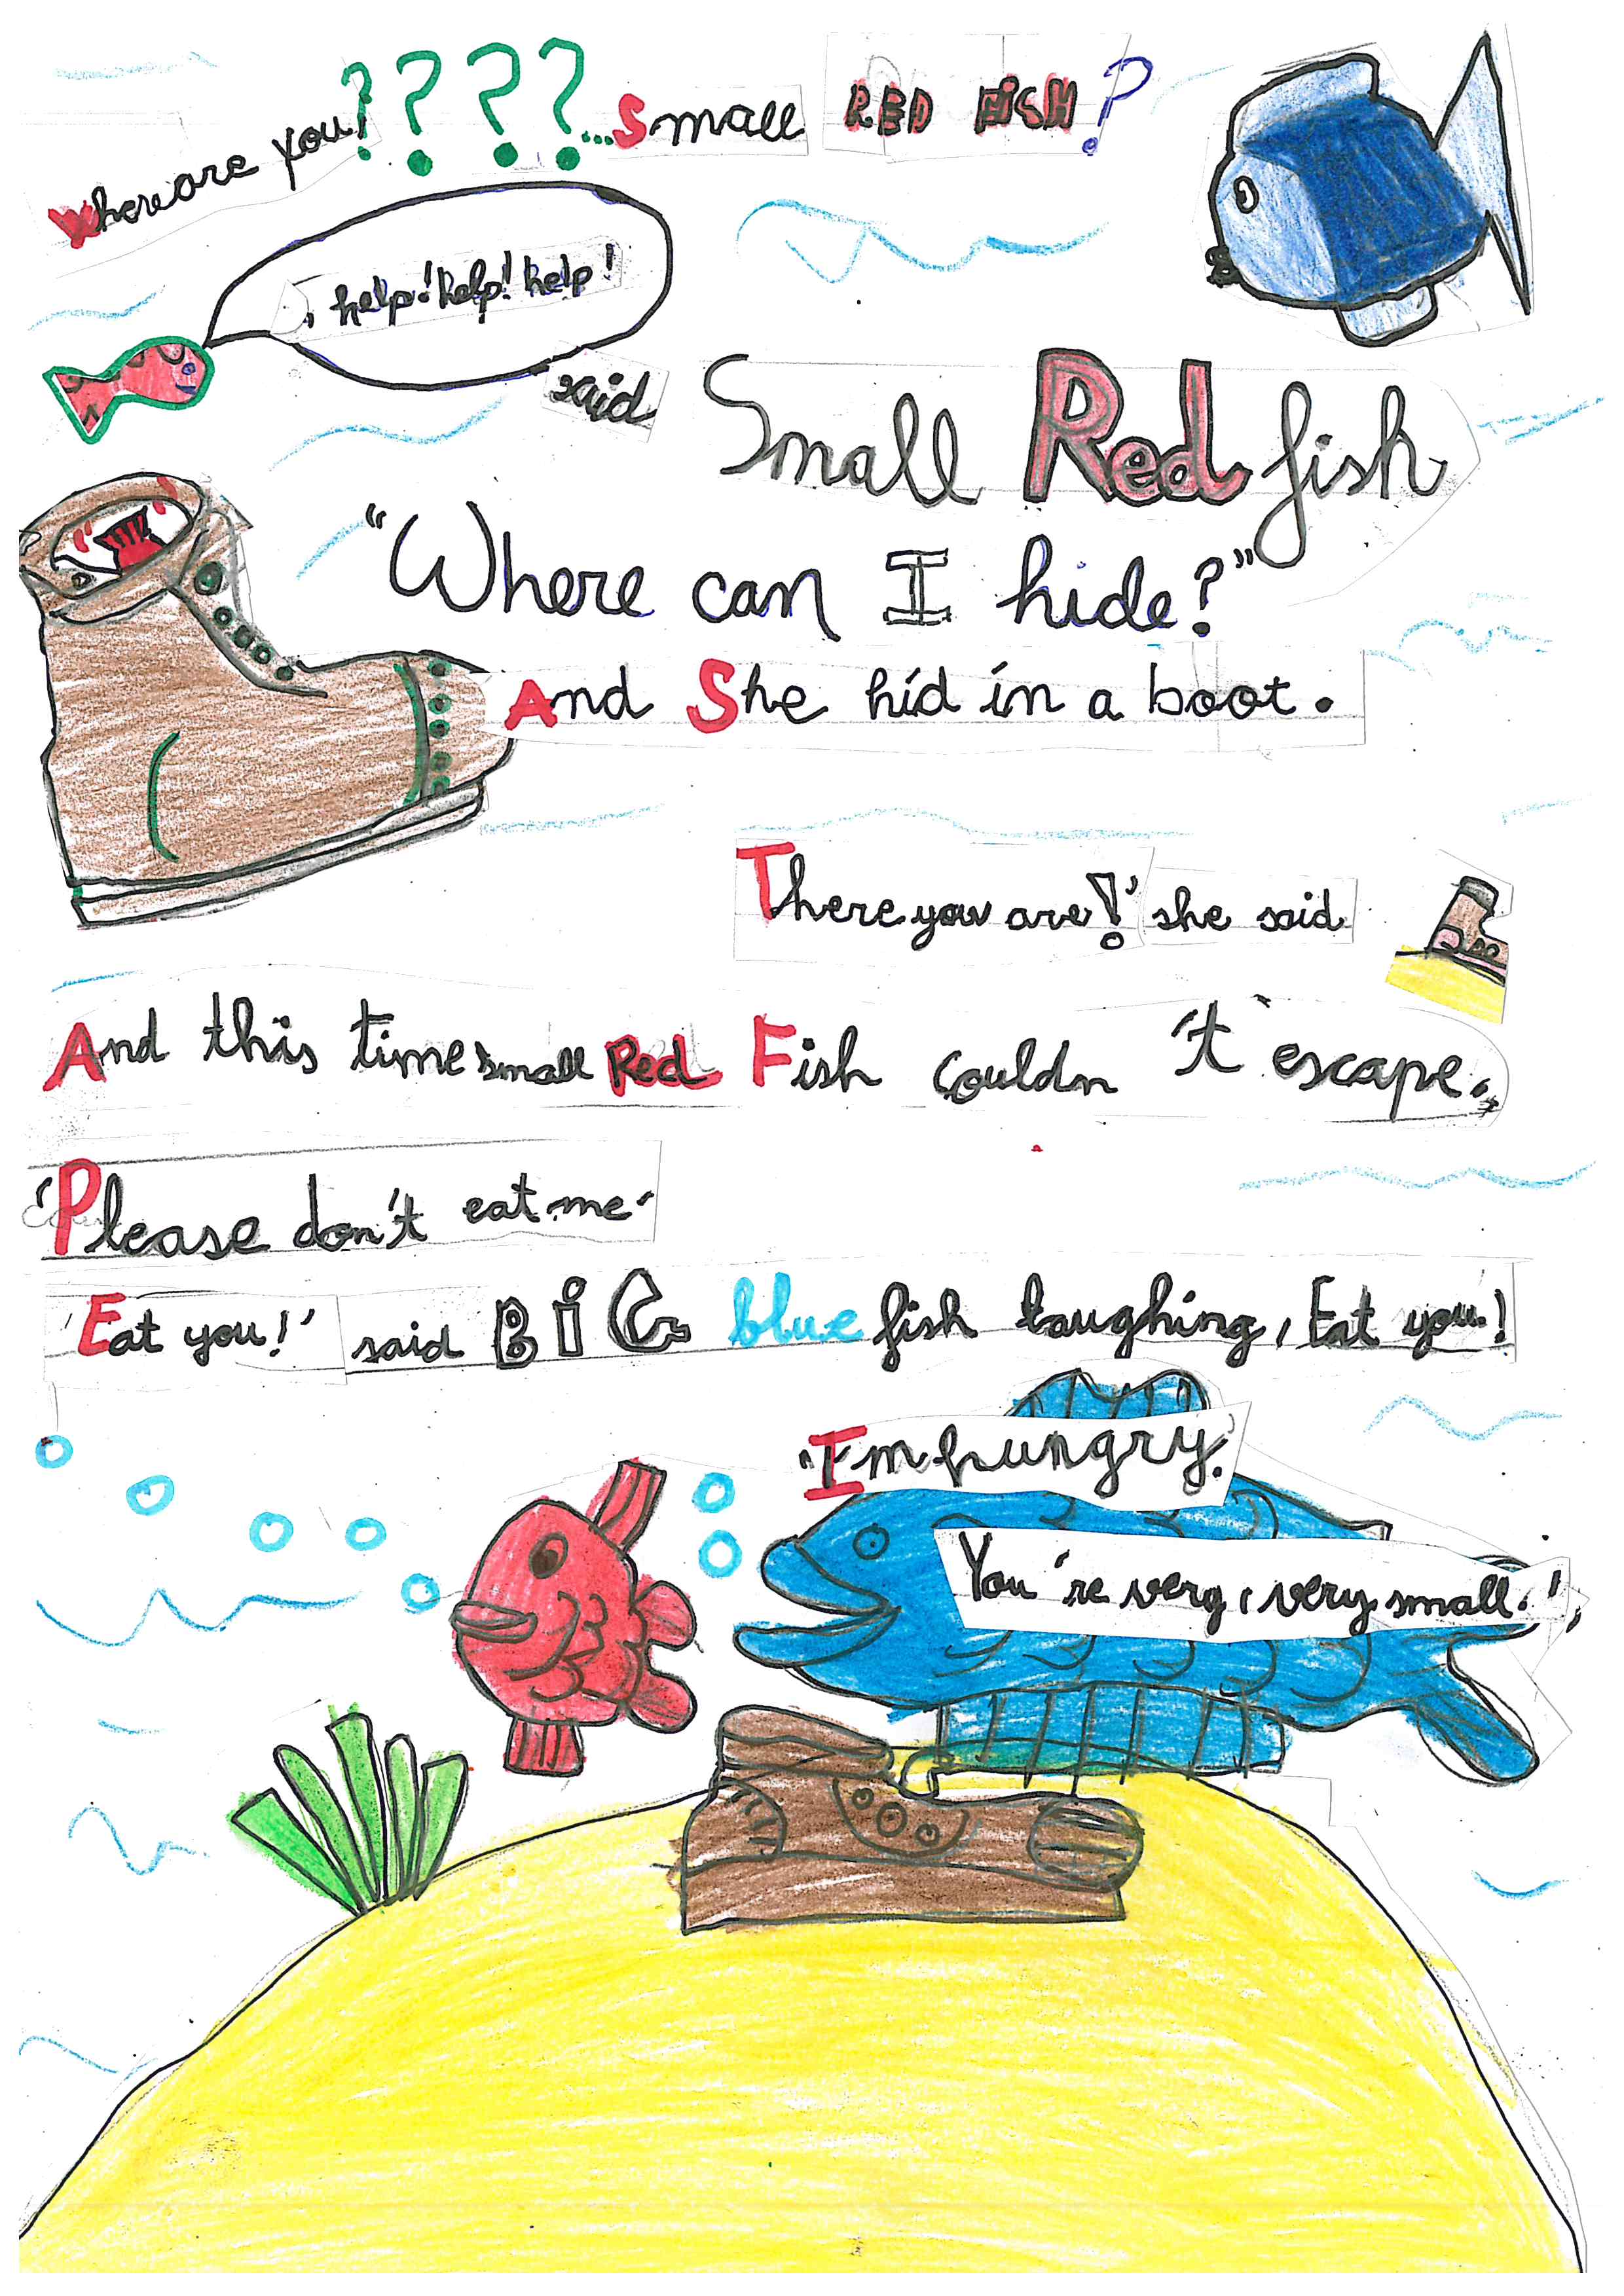 Where are you???? ...Small RED FISH?
, help! help! help!
said
Small Red fish
"Where can I hide?"
And She hid in a boot.
There you are!' she said
And this time small Red Fish couldn't escape.
'Please don't eat me'
'Eat you!' said BIG blue fish laughing, Eat you!
'I'm hungry.
You're very, very small.'